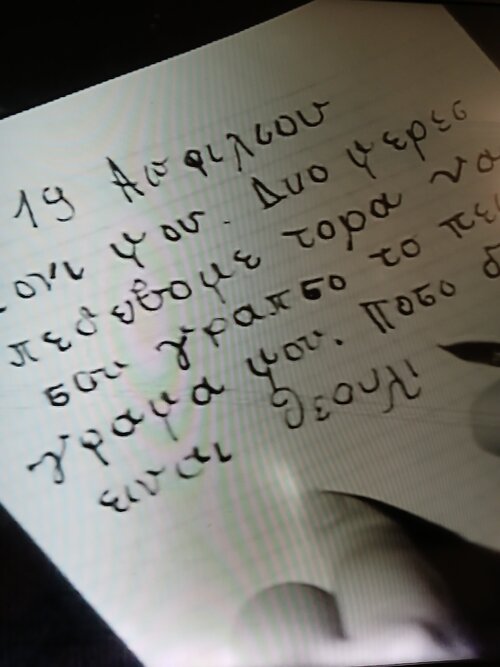 19 Απριλιου
μου. Δυο μερες
πεδευομε τορα να
σου γραπσο το
γραμα μου. Ποσο
ειναι